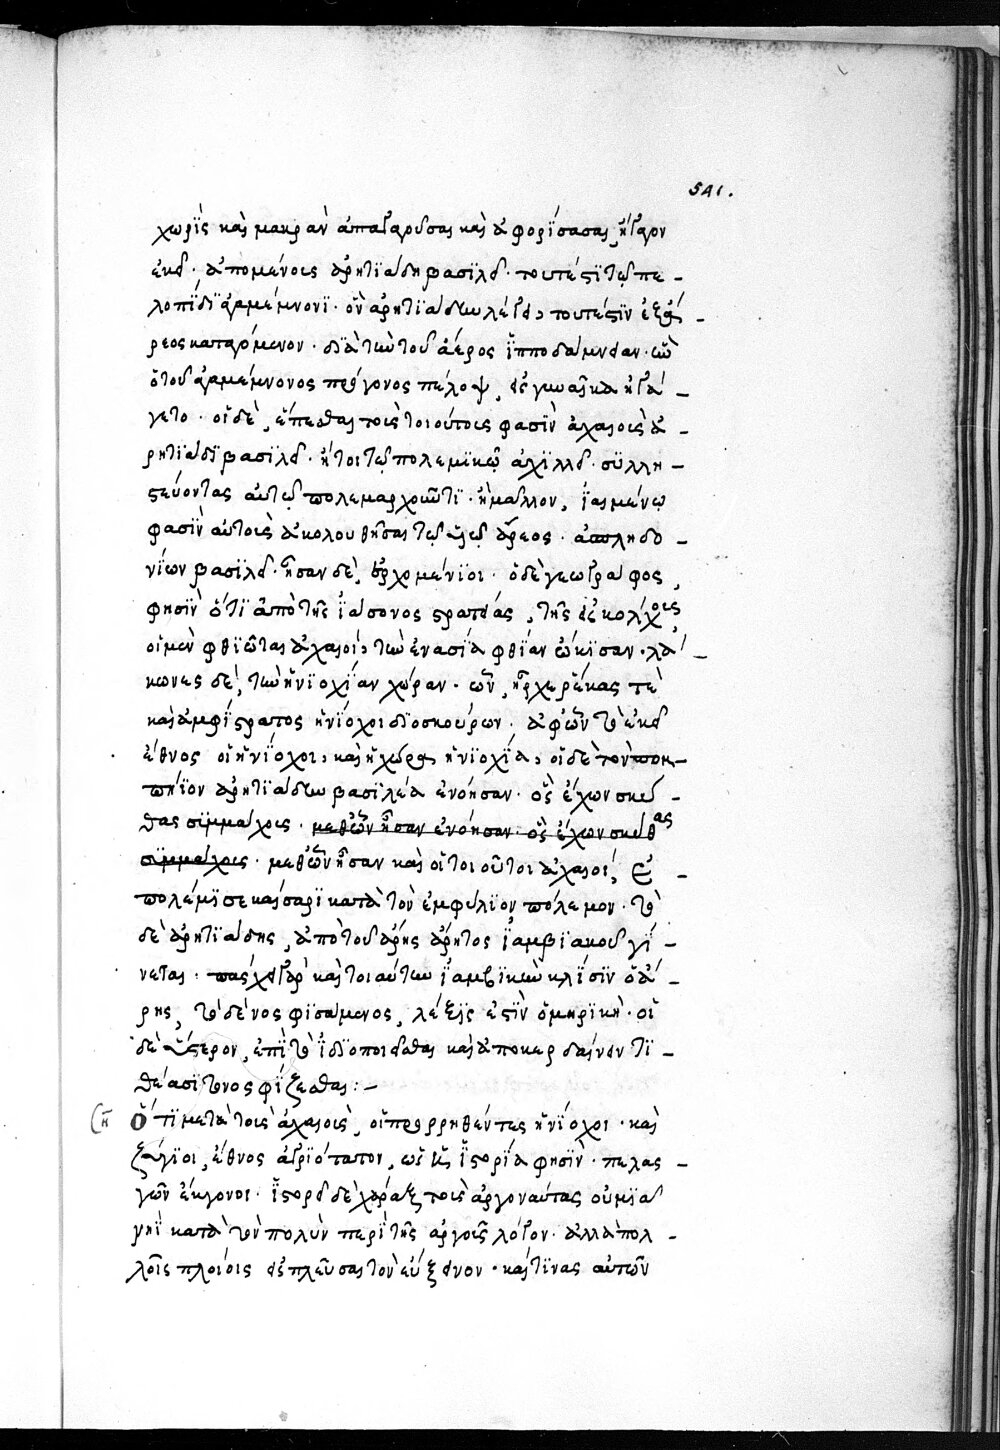 541.
χωρὶς καὶ μακρὰν ἀπαγαγοῦσαι καὶ ἀφορίσασαι, ἤγαγον
ἐκεῖ. ἑπομένους ἀρητιάδῃ βασιλεῖ. τουτέστι τῷ πε-
λοπίδῃ ἀγαμέμνονι. ὃν ἀρητιάδην λέγει, τουτέστιν ἐξ ἄ-
ρεος καταγόμενον. διὰ τὴν τοῦ ἄρεος ἱπποδάμειαν. ἣν
ὁ τοῦ ἀγαμέμνονος πρόγονος πέλοψ, εἰς γυναῖκα ἠγά-
γετο. οἱ δὲ, ἕπεσθαι τοῖς τοιούτοις φασὶν ἀχαιοῖς ἀ-
ρητιάδῃ βασιλεῖ. ἤτοι τῷ πολεμικῷ ἀχιλλεῖ. συλλη-
στεύοντας αὐτῷ πολεμαρχοῦντι. ἢ μᾶλλον, ἰαλμένῳ
φασὶν αὐτοῖς ἀκολουθῆσαι τῷ υἱῷ ἄρεος. ἀσπληδο-
νίων βασιλεῖ. ἦσαν δὲ, ὀρχομένιοι. ὁ δὲ γεωγράφος,
φησὶν ὅτι ἀπὸ τῆς ἰάσονος στρατείας, τῆς εἰς κόλχους,
οἱ μὲν φθιῶται ἀχαιοί, τὴν ἐν ἀσίᾳ φθίαν ᾤκισαν. λά-
κωνες δὲ, τὴν ἡνιοχίαν χώραν. ὧν, ἦρχε ῥέκας τὲ
καὶ ἀμφίστρατος ἡνίοχοι διοσκούρων. ἀφ' ὧν τὸ ἐκεῖ
ἔθνος οἱ ἡνίοχοι, καὶ ἡ χώρα, ἡνιοχία, οἱ δὲ τὸν πομ-
πήιον ἀρητιάδην βασιλέα ἐνόησαν. ὃς ἔχων σκύ-
θας συμμάχους. μεθ' ὧν ἦσαν ἐνόησαν. ὃς ἔχων σκύθας
συμμάχους. μεθ' ὧν ἦσαν καὶ οἵτοι οὗτοι ἀχαιοί, ἐ-
πολέμισε καίσαρι κατὰ τὸν ἐμφύλιον πόλεμον. τὸ
δὲ ἀρητιάδης, ἀπὸ τοῦ ἄρης ἄρητος ἰαμβιακοῦ γί-
νεται. πάσχει γὰρ καὶ τοιαύτην ἰαμβικὴν κλίσιν ὁ ἄ-
ρης, τὸ δὲ νοσφισάμενος, λέξις ἐστὶν ὁμηρική. οἱ
δὲ ὕστερον, ἐπὶ τὸ ἰδιοποιεῖσθαι καὶ ἀποκερδαίνειν τι-
θέασι τὸ νοσφίζεσθαι:-
(η Ὅτι μετὰ τοῖς ἀχαιοῖς, οἱ προρρηθέντες ἡνίοχοι. καὶ
ζάγιοι, ἔθνος ἀγριότατον, ὡς ἡ ἱστορία φησίν. πελασ-
γῶν ἔκγονοι. ἱστορεῖ δὲ χάραξ τοὺς ἀργοναύτας οὐ μιᾷ
νηὶ κατὰ τὸν πολὺν περὶ τῆς ἀργοῦς λόγον. ἀλλὰ πολ-
λοῖς πλοίοις εἰσπλεῦσαι τὸν εὔξεινον. καὶ τινας αὐτῶν